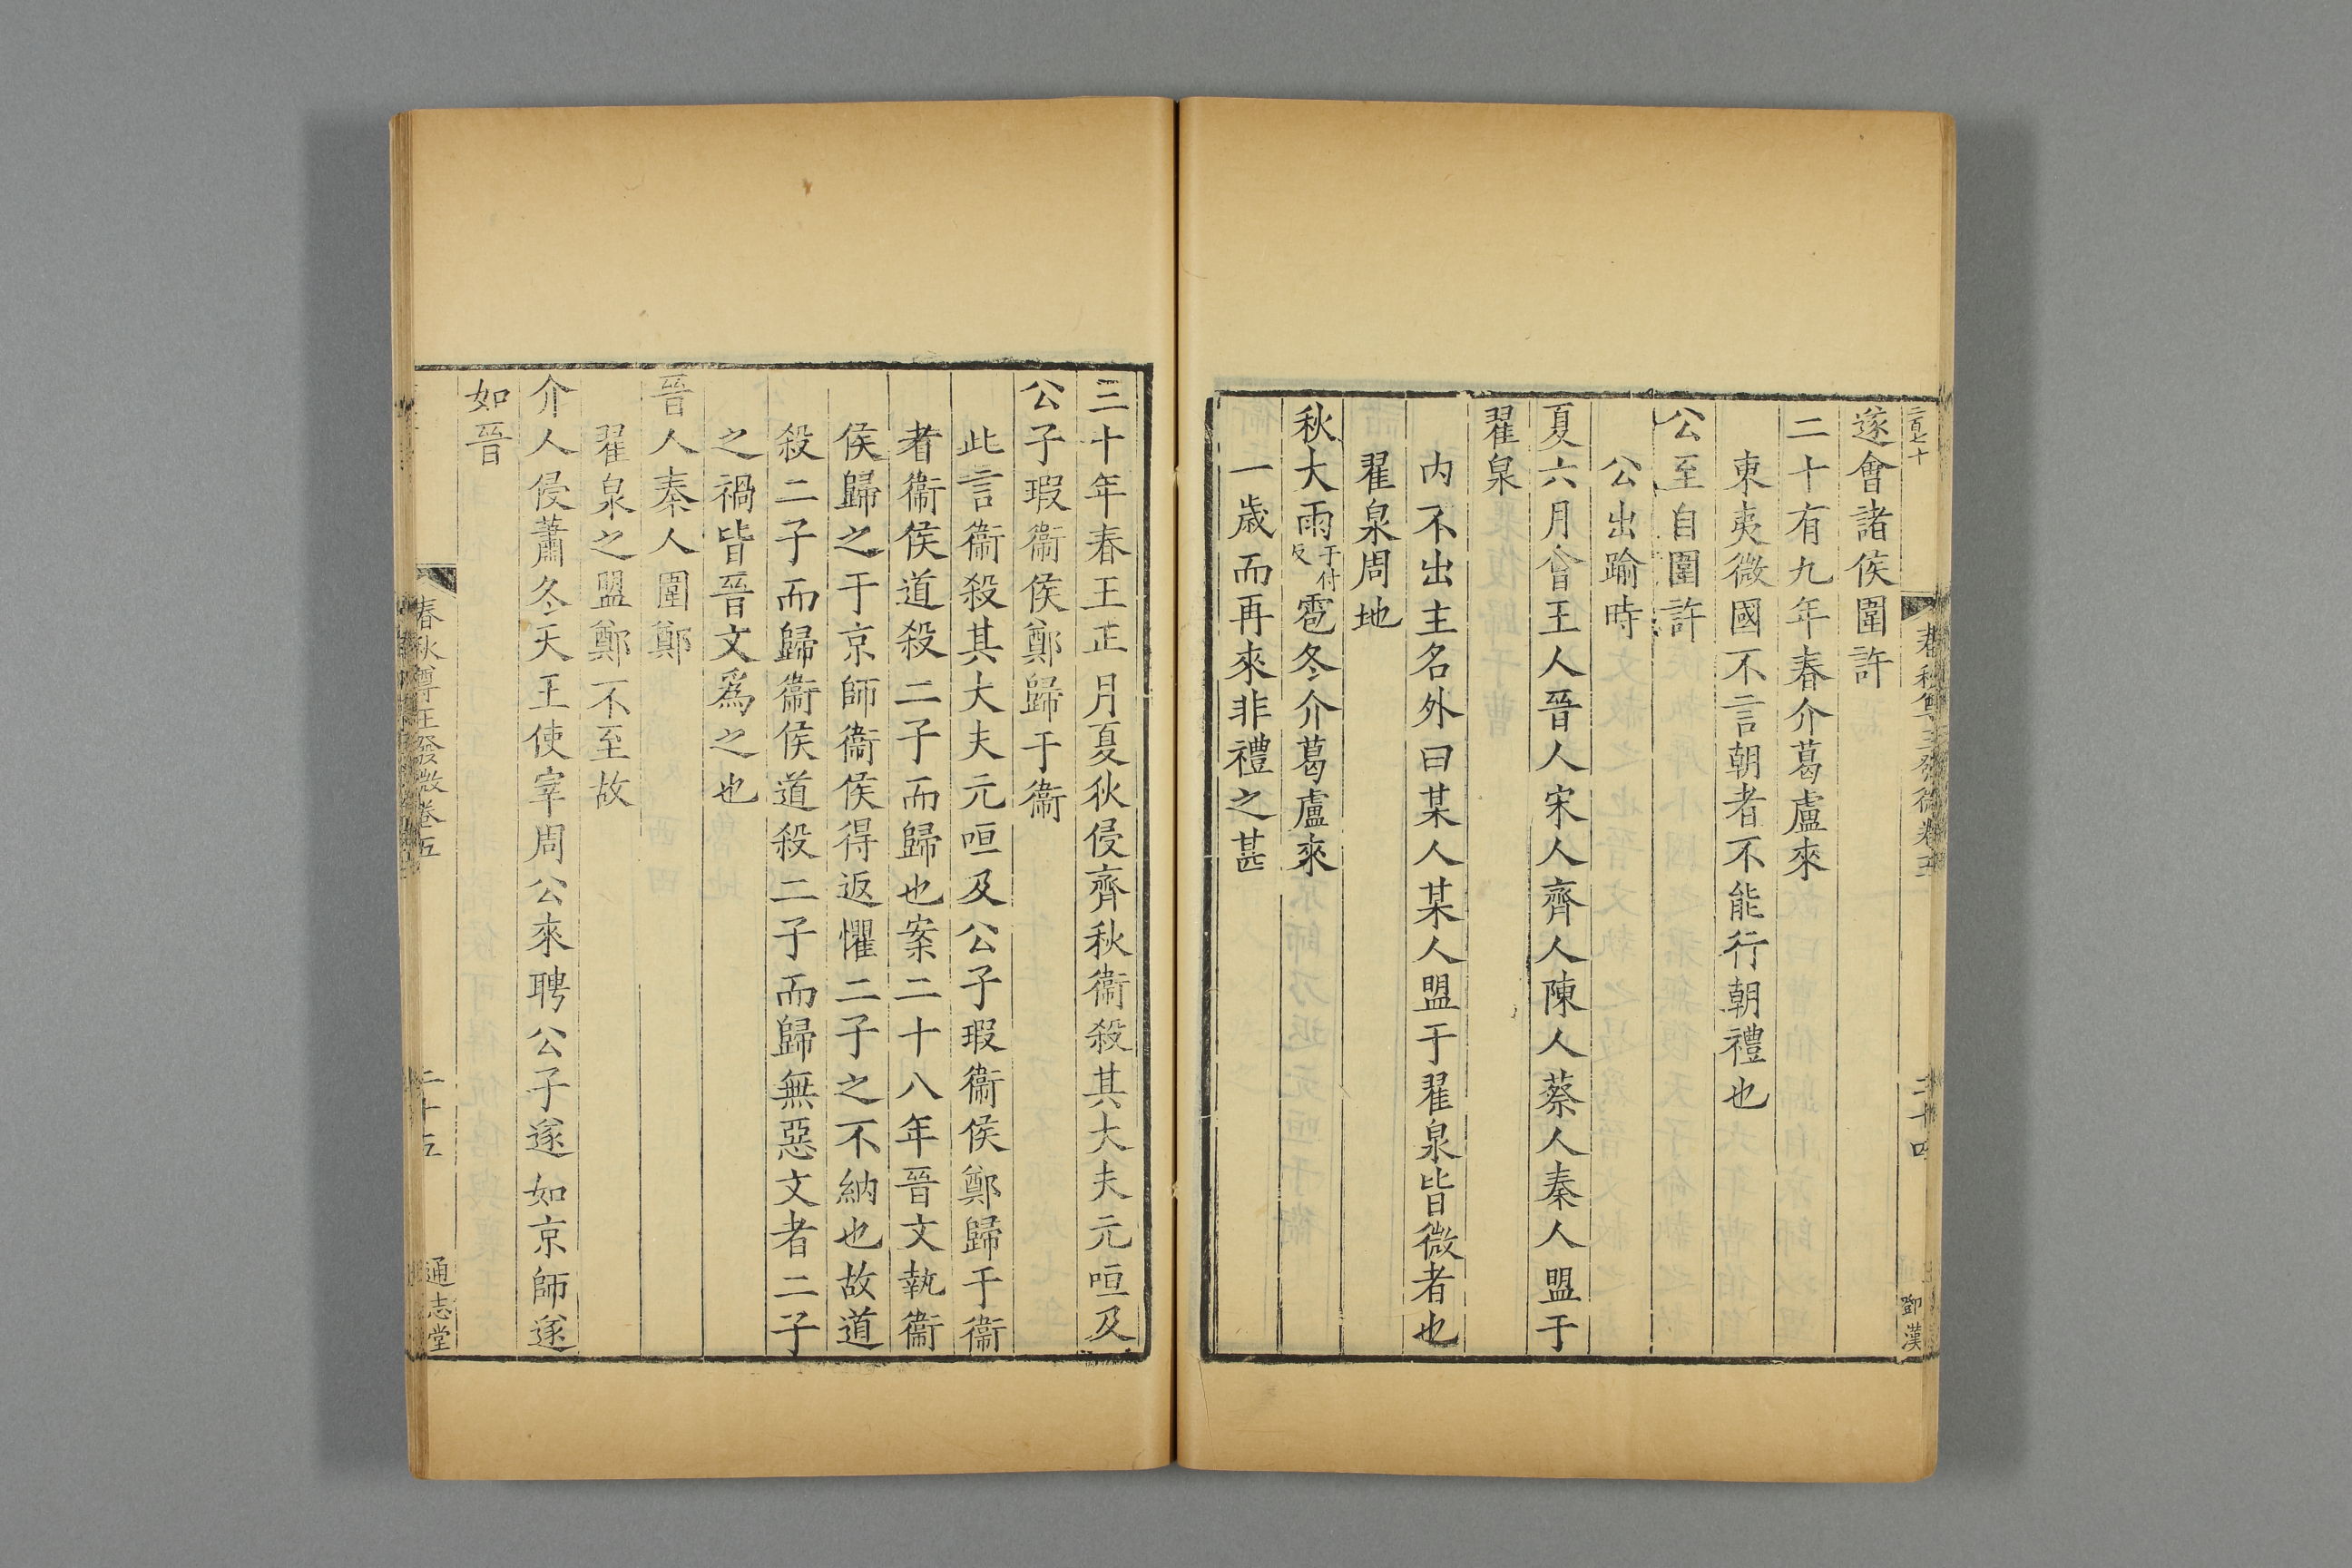 二百七十
春秋尊王發微卷五
二十四
鄧漢
遂會諸侯圍許
二十有九年春介葛盧來
東夷微國不言朝者不能行朝禮也
公至自圍許
公出踰時
夏六月會王人晉人宋人齊人陳人蔡人秦人盟于
翟泉
内不出主名外曰某人某人盟于翟泉皆微者也
翟泉周地
秋大雨于付反雹冬介葛盧來
一歲而再來非禮之甚
三十年春王正月夏狄侵齊秋衞殺其大夫元咺及
公子瑕衞侯鄭歸于衞
此言衞殺其大夫元咺及公子瑕衞侯鄭歸于衞
者衞侯道殺二子而歸也案二十八年晉文執衞
侯歸之于京師衞侯得返懼二子之不納也故道
殺二子而歸衞侯道殺二子而歸無惡文者二子
之禍皆晉文爲之也
晉人秦人圍鄭
翟泉之盟鄭不至故
介人侵蕭冬天王使宰周公來聘公子遂如京師遂
如晉
春秋尊王發微卷五
二十五
通志堂